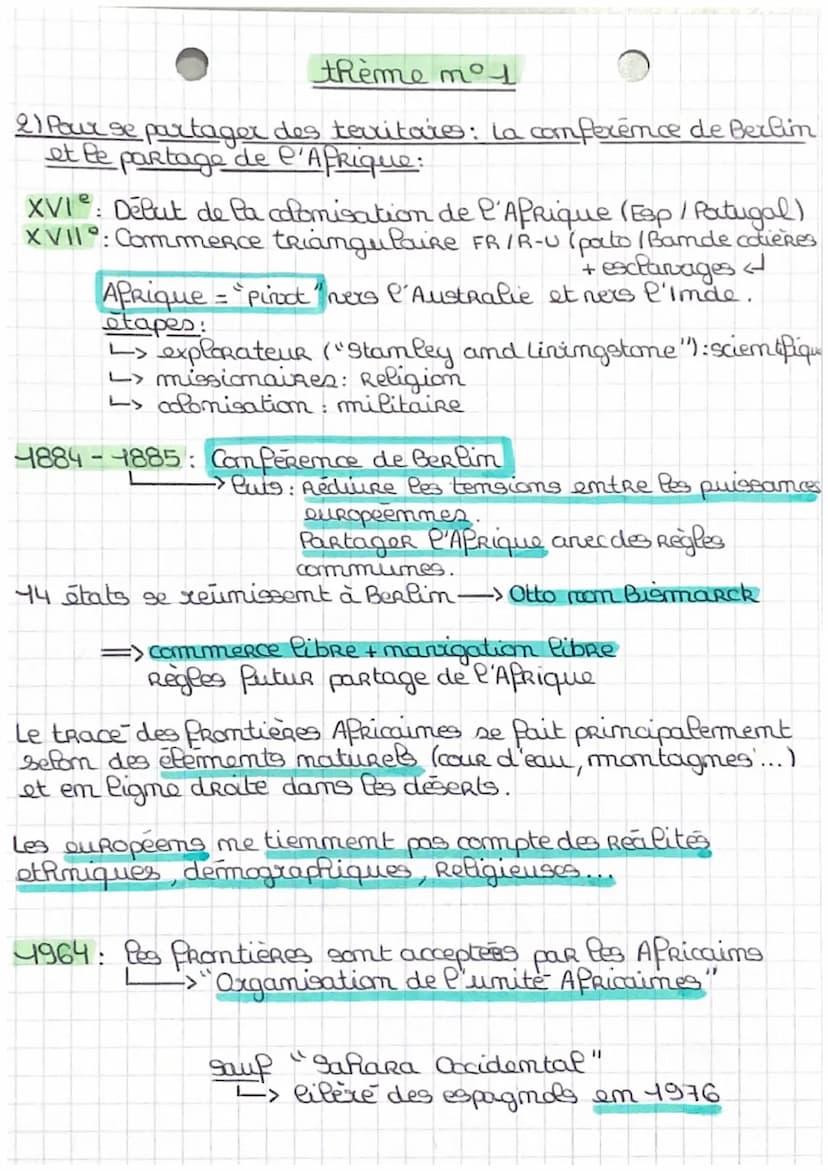 thème n°1
2) Pour se partager des territoires : La conférence de Berlin
et le partage de l'Afrique :
XVIe : Début de la colonisation de l'Afrique (Esp / Portugal)
XVIIe : Commerce triangulaire FR / R-U (parto / Bande cotières
+ esclavages ↵
Afrique = "pivot" vers l'Australie et vers l'Inde.
étapes :
↳ explorateur ("Stanley and Livingstone") : scientifique
↳ missionaires : Religion
↳ colonisation : militaire
1884 - 1885 : Conférence de Berlin
↳ buts : Réduire les tensions entre les puissances
européennes.
Partager l'Afrique avec des Règles
communes.
14 états se réunissent à Berlin → Otto von Bismarck
⇒ commerce libre + navigation libre
Règles futur partage de l'Afrique
Le tracé des frontières Africaines se fait principalement
selon des éléments naturels (cour d'eau, montagnes...)
et en ligne droite dans les déserts.
Les européens ne tiennent pas compte des Réalités
ethniques, démographiques, Religieuses...
1964 : les frontières sont acceptées par les Africains
↳ "Organisation de l'unité Africaines"
sauf "Sahara Occidental"
↳ libéré des espagnols en 1976